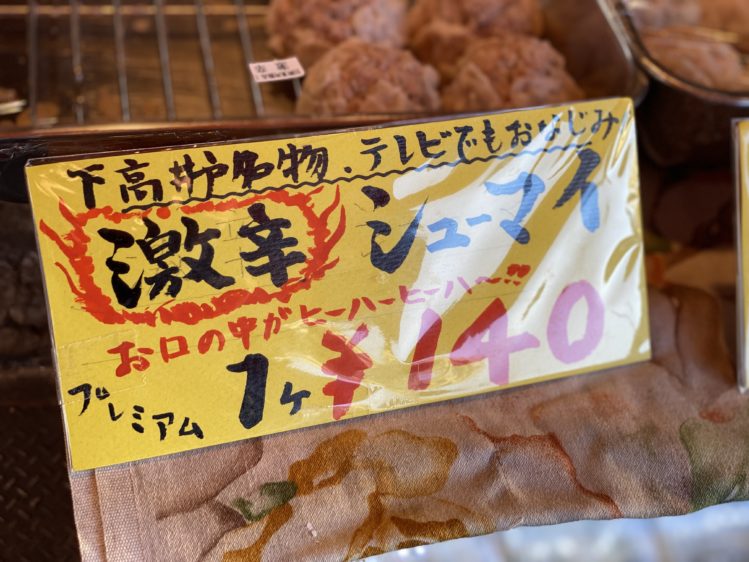 下高井戸名物、テレビでもおなじみ
激辛 シューマイ
お口の中がヒーハーヒーハ〜!!
プレミアム 1ヶ ¥140